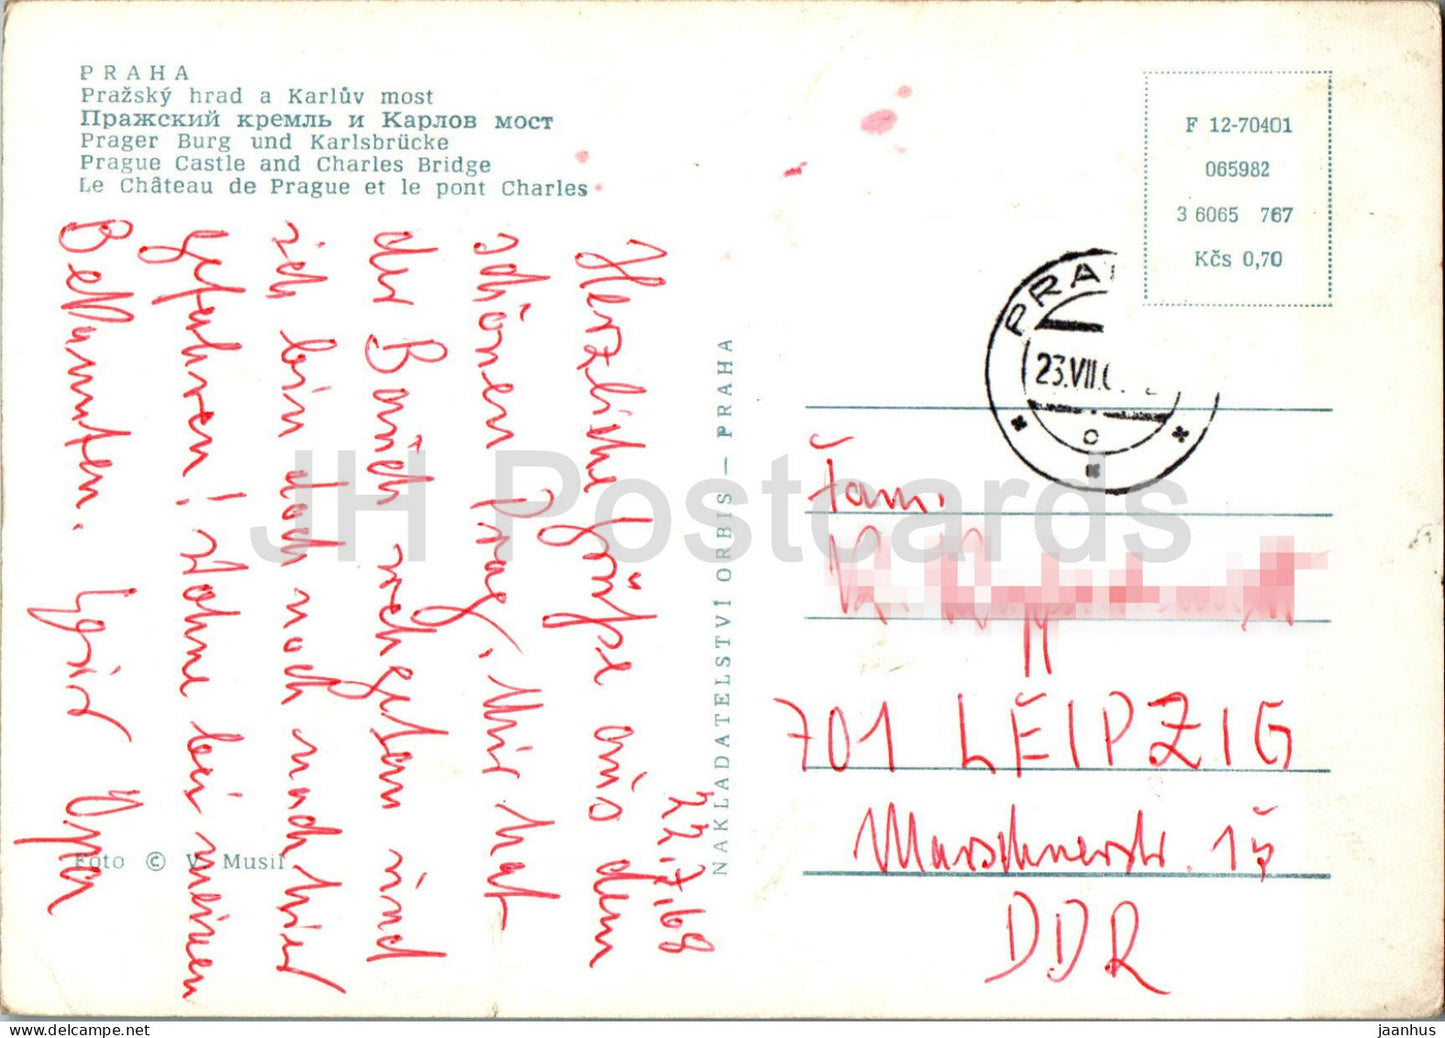 PRAHA
Pražský hrad a Karlův most
Пражский кремль и Карлов мост
Prager Burg und Karlsbrücke
Prague Castle and Charles Bridge
Le Château de Prague et le pont Charles
F 12-70401
065982
3 6065 767
Kčs 0,70
PRA
23.VII.
22.7.68
Herzliche Grüße aus dem
schönen Prag. Mir hat
der Bauch wehgetan und
ich bin doch noch nach hier
gefahren! Wohne bei meinen
Bekannten. Opa
Foto © V. Musil
NAKLADATELSTVÍ ORBIS — PRAHA
Fam.
701 LEIPZIG
Marschnerstr. 15
DDR
JH Postcards
delcampe.net
jaanhus